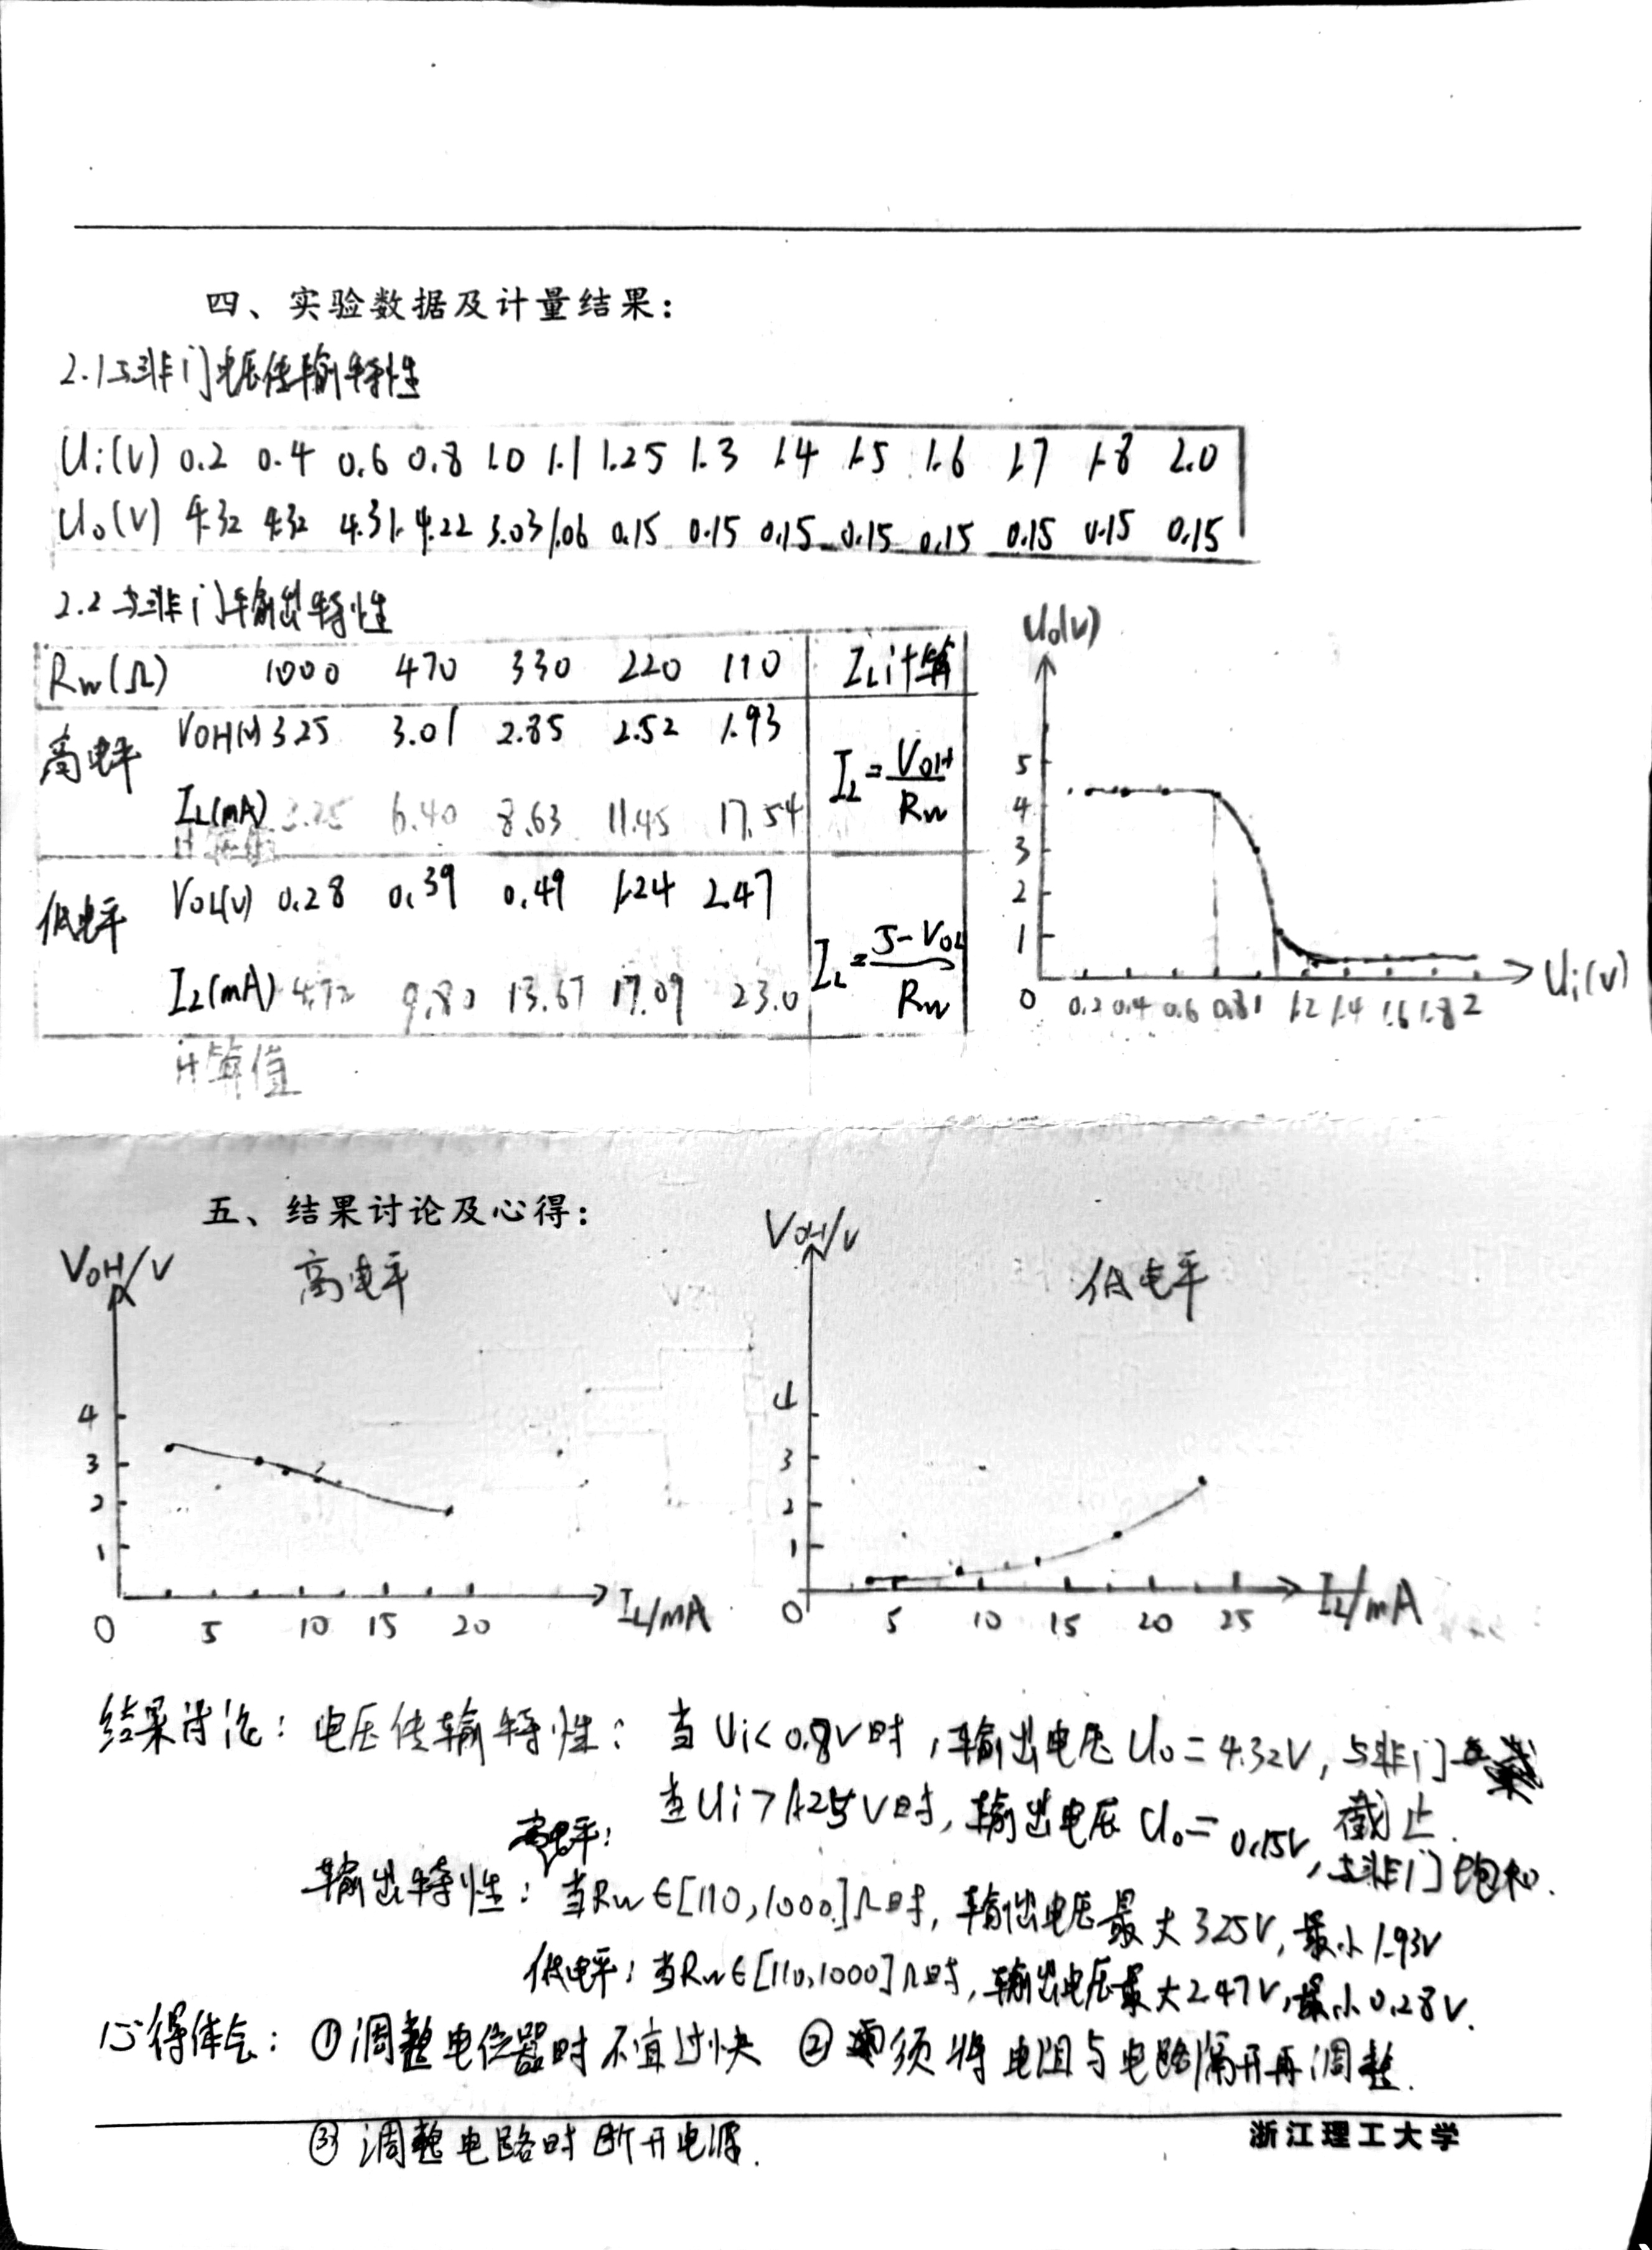 四、实验数据及计量结果：
2.1与非门电压传输特性
Ui(V) 0.2 0.4 0.6 0.8 1.0 1.1 1.25 1.3 1.4 1.5 1.6 1.7 1.8 2.0
Uo(V) 4.32 4.32 4.31 4.22 3.03 1.06 0.15 0.15 0.15 0.15 0.15 0.15 0.15 0.15
2.2 与非门输出特性
Rw(Ω) 1000 470 330 220 110 IL计算
高电平 VOH(V) 3.25 3.01 2.85 2.52 1.93
IL(mA) 3.25 6.40 8.63 11.45 17.54 IL=VOH/Rw
计算值
低电平 VOL(V) 0.28 0.39 0.49 1.24 2.47
IL(mA) 4.72 9.80 13.67 17.09 23.0 IL=5-VOL/Rw
计算值
Uo(V)
5
4
3
2
1
0 0.2 0.4 0.6 0.8 1 1.2 1.4 1.6 1.8 2 Ui(V)
五、结果讨论及心得：
VOH/V 高电平
4
3
2
1
0 5 10 15 20 IL/mA
VOH/V 低电平
4
3
2
1
0 5 10 15 20 25 IL/mA
结果讨论：电压传输特性：当Ui<0.8V时，输出电压Uo=4.32V，与非门
截止.
当Ui>1.25V时，输出电压Uo=0.15V，与非门饱和.
高电平：
输出特性：当Rw∈[110,1000]Ω时，输出电压最大3.25V，最小1.93V
低电平：当Rw∈[110,1000]Ω时，输出电压最大2.47V，最小0.28V.
心得体会：①调整电位器时不宜过快 ②须将电阻与电路隔开再调整.
③调整电路时断开电源.
浙江理工大学